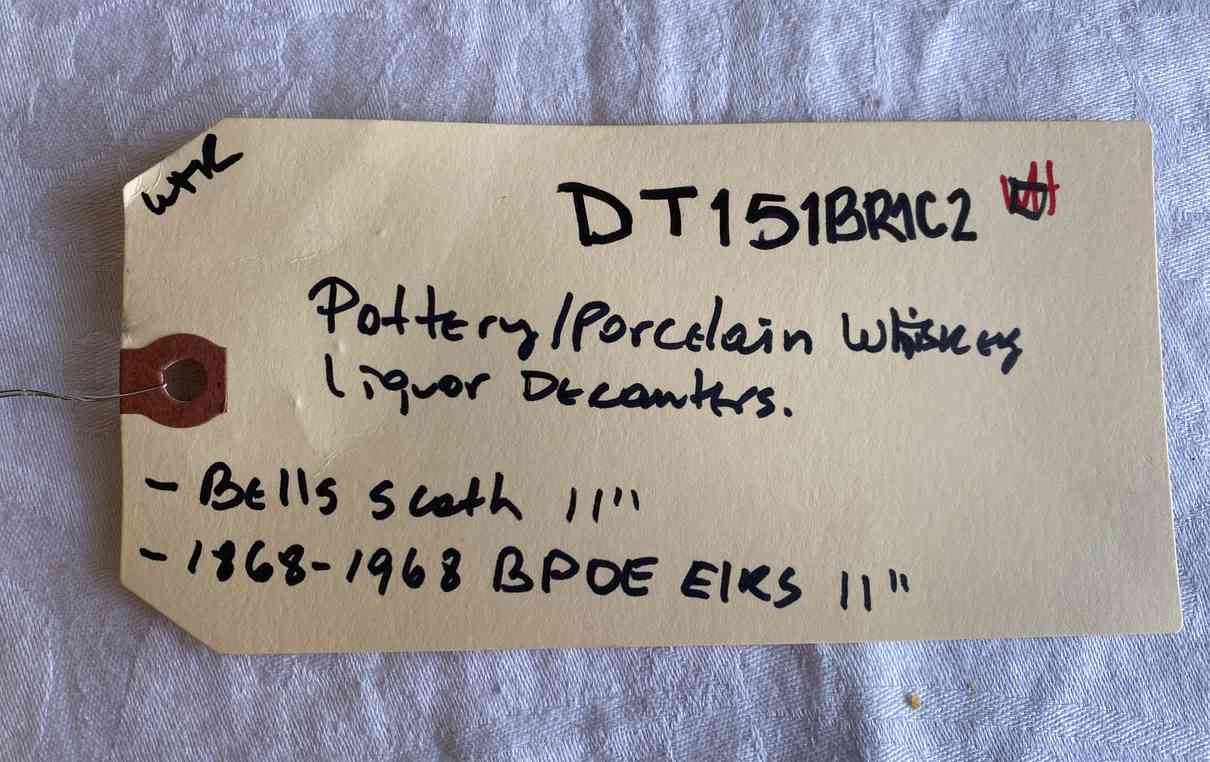 WHR
DT151BR1C2 WH
Pottery/Porcelain Whiskey
liquor Decanters.
- Bells Scoth 11"
- 1868-1968 BPOE Elks 11"